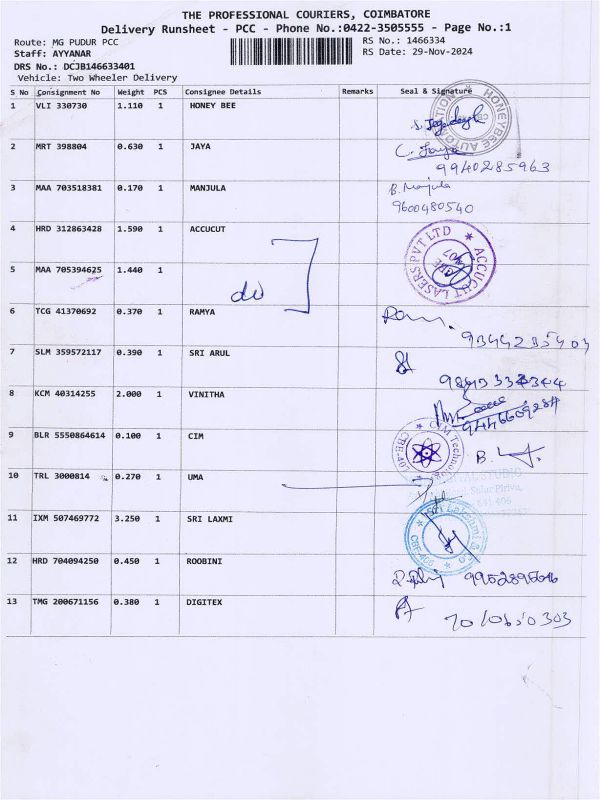 THE PROFESSIONAL COURIERS, COIMBATORE
Delivery Runsheet - PCC - Phone No.:0422-3505555 - Page No.:1
Route: MG PUDUR PCC RS No.: 1466334
Staff: AYYANAR RS Date: 29-Nov-2024
DRS No.: DCJB146633401
Vehicle: Two Wheeler Delivery
S No Consignment No Weight PCS Consignee Details Remarks Seal & Signature
1 VLI 330730 1.110 1 HONEY BEE
HONEYBEE AUTOMATION
2 MRT 398804 0.630 1 JAYA C. Jaya
9940285963
3 MAA 703518381 0.170 1 MANJULA B. Manjula
9600480540
4 HRD 312863428 1.590 1 ACCUCUT
ACCUCUT LASERS PVT LTD
5 MAA 705394625 1.440 1 do
6 TCG 41370692 0.370 1 RAMYA
7 SLM 359572117 0.390 1 SRI ARUL
8 KCM 40314255 2.000 1 VINITHA
9 BLR 5550864614 0.100 1 CIM
10 TRL 3000814 0.270 1 UMA
11 IXM 507469772 3.250 1 SRI LAXMI
12 HRD 704094250 0.450 1 ROOBINI
13 TMG 200671156 0.380 1 DIGITEX